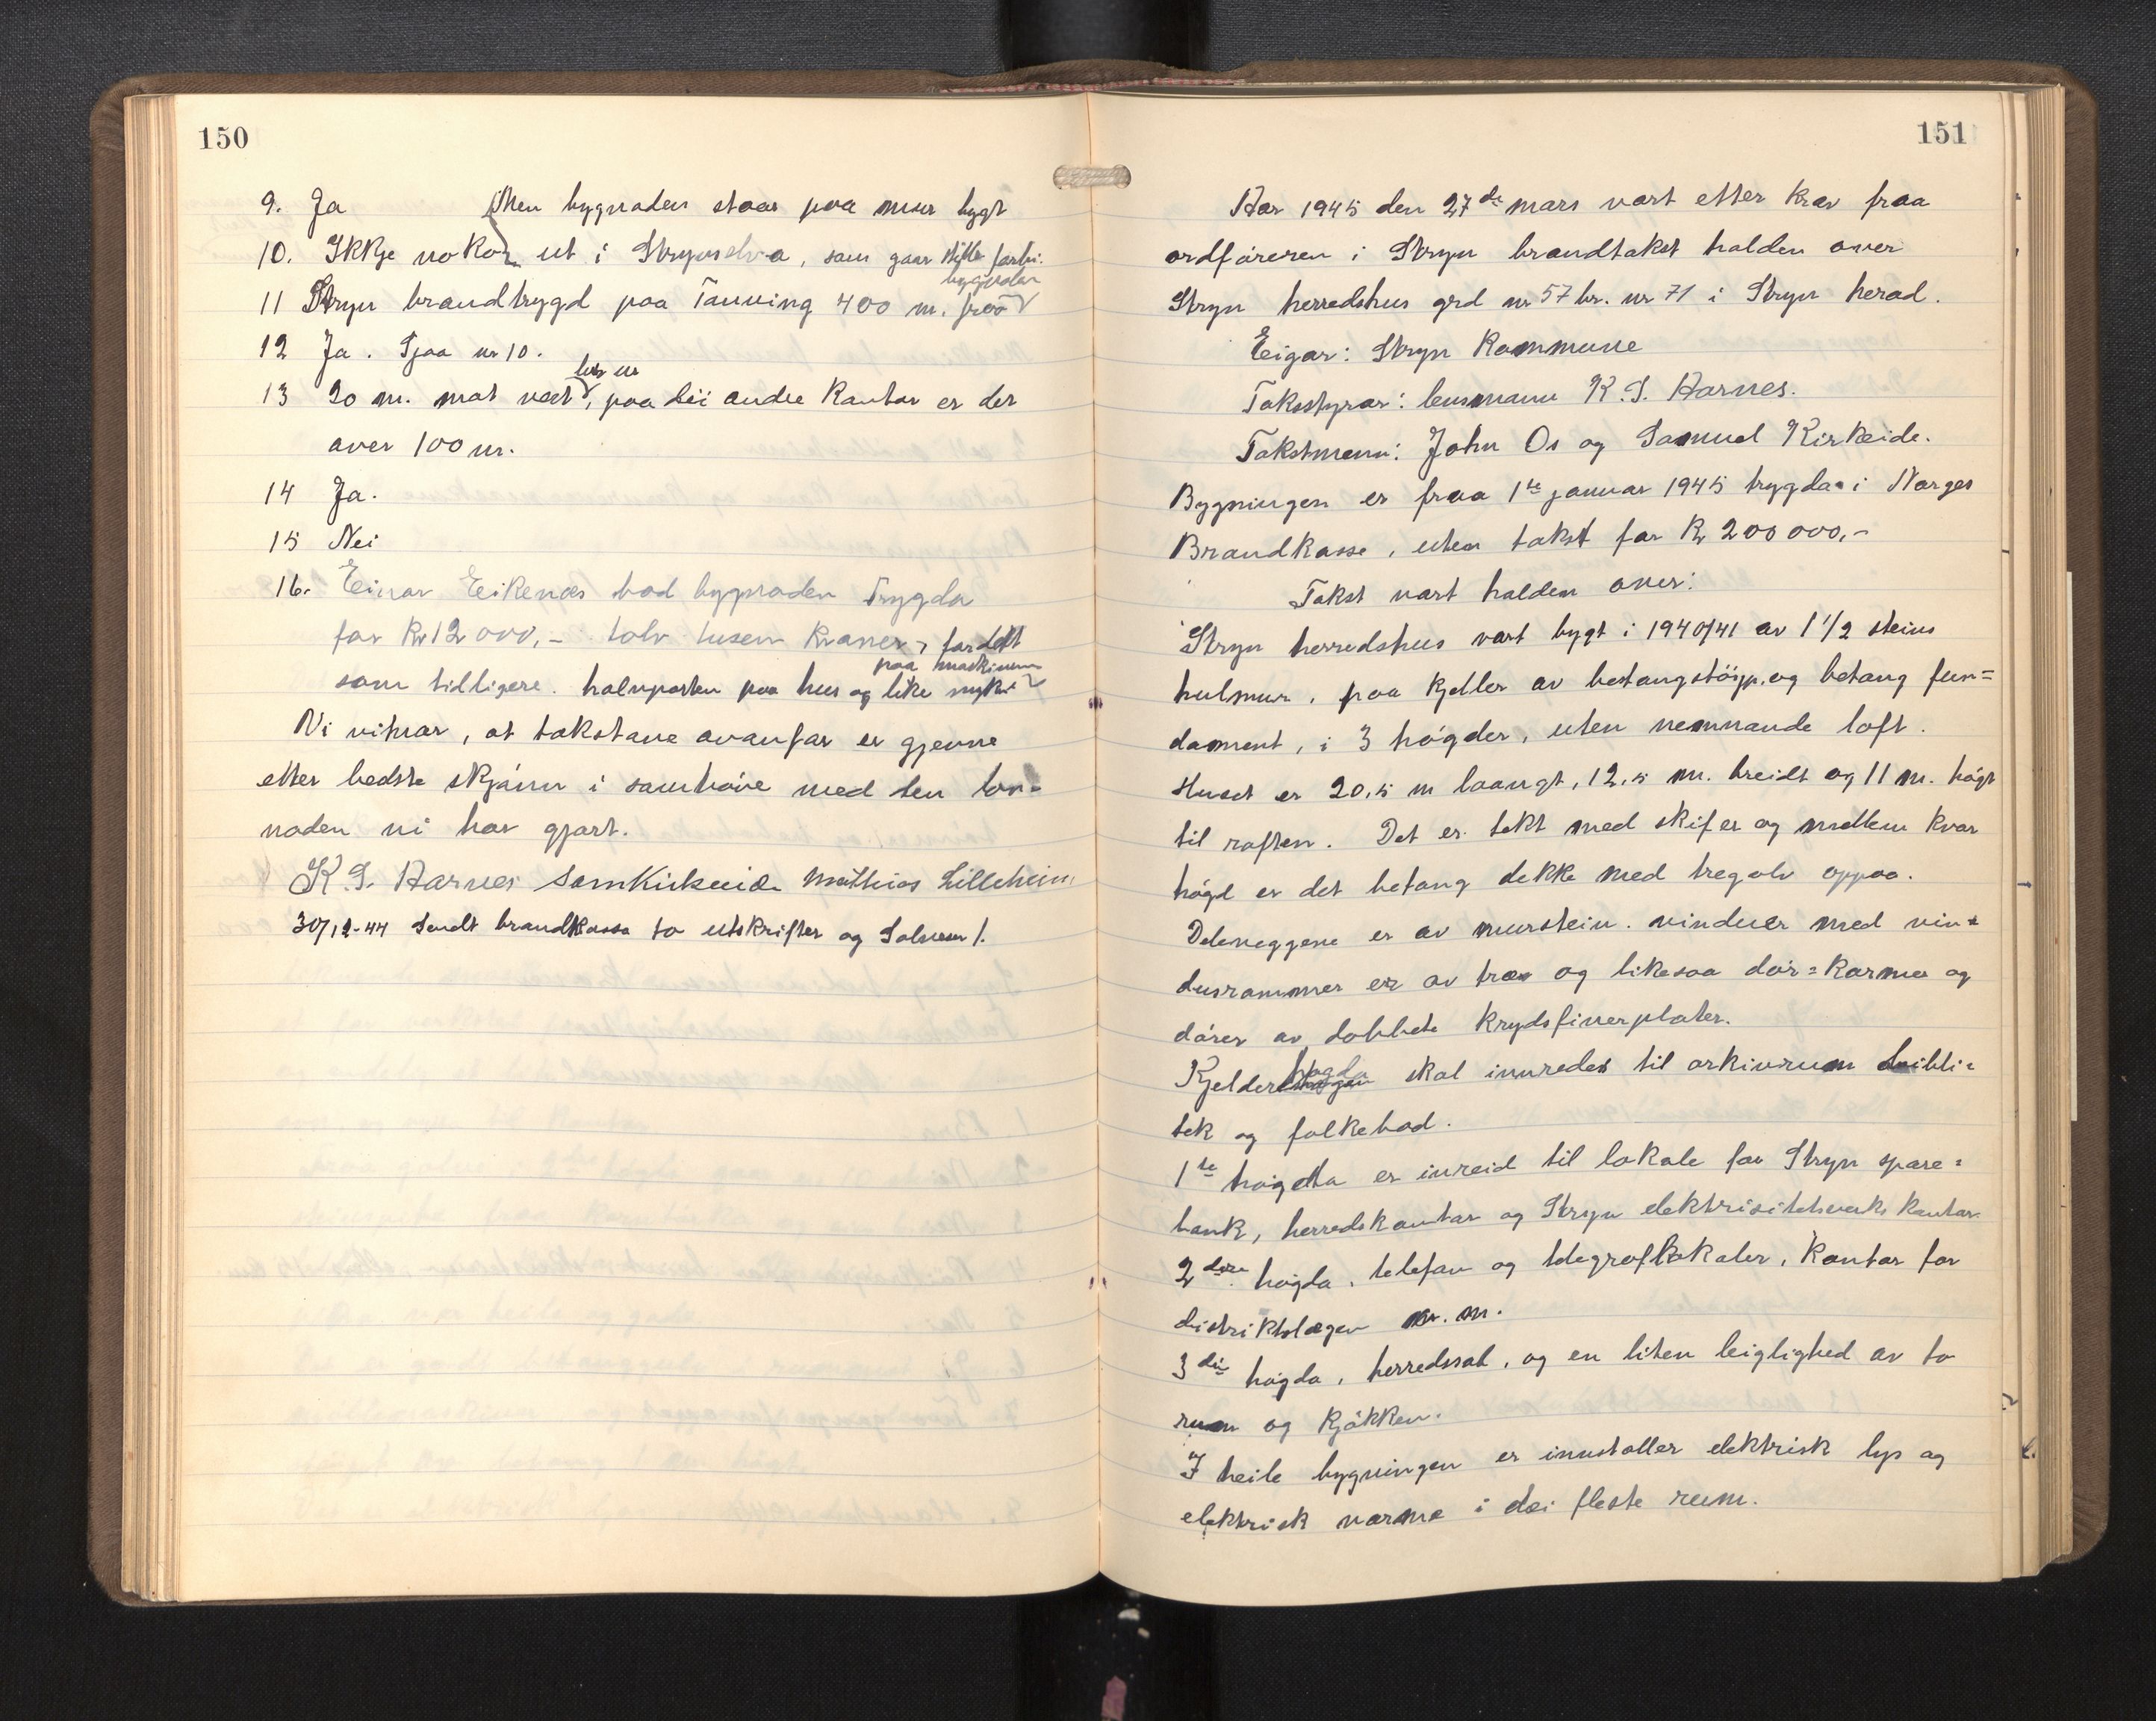 150
9. Ja Men bygnaden staar paa mur bygt
10. Ikkje nokon ut i Strynselva, som gaar stille forbi.
11 Stryn brandtrygd paa Tonning 400 m. fraa bygnaden
12 Ja. Sjaa nr 10.
13 20 m. mot vest, paa dei andre kantar er det
over 100 m.
14 Ja.
15 Nei
16. Einar Eikenæs bad bygnaden trygda
for Kr 12 000,- tolv tusen kroner, fordelt
som tidligere. halvparten paa hus og like mykje paa maskinene
Vi vitnar, at takstane ovanfor er gjevne
etter bedste skjønn i samhøve med den lov-
naden vi har gjort.
K. S. Aarnes Sam Kirkeide Mathias Lilleheim
30/12-44 Sendt brandkassa to utskrifter og Solvesen 1.
151
Aar 1945 den 27de mars vart etter krav fraa
ordføreren i Stryn brandtakst halden over
Stryn herredshus grd nr 57 br. nr 71 i Stryn herad.
Eigar: Stryn Kommune
Takststyrar: lensmann K. S. Aarnes.
Takstmenn: John Os og Samuel Kirkeide.
Bygningen er fraa 1te januar 1945 trygda i Norges
Brandkasse, uten takst for Kr 200 000,-
Takst vart halden over:
Stryn herredshus vart bygt i 1940/41 av 1 1/2 steins
hulmur, paa kjeller av betongstøyp og betong fun=
dament, i 3 høgder, uten nemnande loft.
Huset er 20,5 m laangt, 12,5 m. breidt og 11 m. høgt
til raften. Det er tekt med skifer og mellem kvar
høgd er det betong dekke med tregolv oppaa.
Deleveggene er av murstein. vinduer med vin=
dusrammer er av træ og likesaa dør=karmer og
dører av dobbete krydsfinerplater.
Kjelderhøgda skal innredes til arkivrum bibli=
tek og folkebad.
1te høgda er inreid til lokale for Stryn spare=
bank, herredskontor og Stryn elektrisitetsverks kontor
2dre høgda, telefon og telegraflokaler, kontor for
distriktslægen m. m.
3die høgda, herredssal, og en liten leiglighed av to
rum og kjøkken.
I heile bygningen er innstaller elektrisk lys og
elektrisk varme i dei fleste rum.